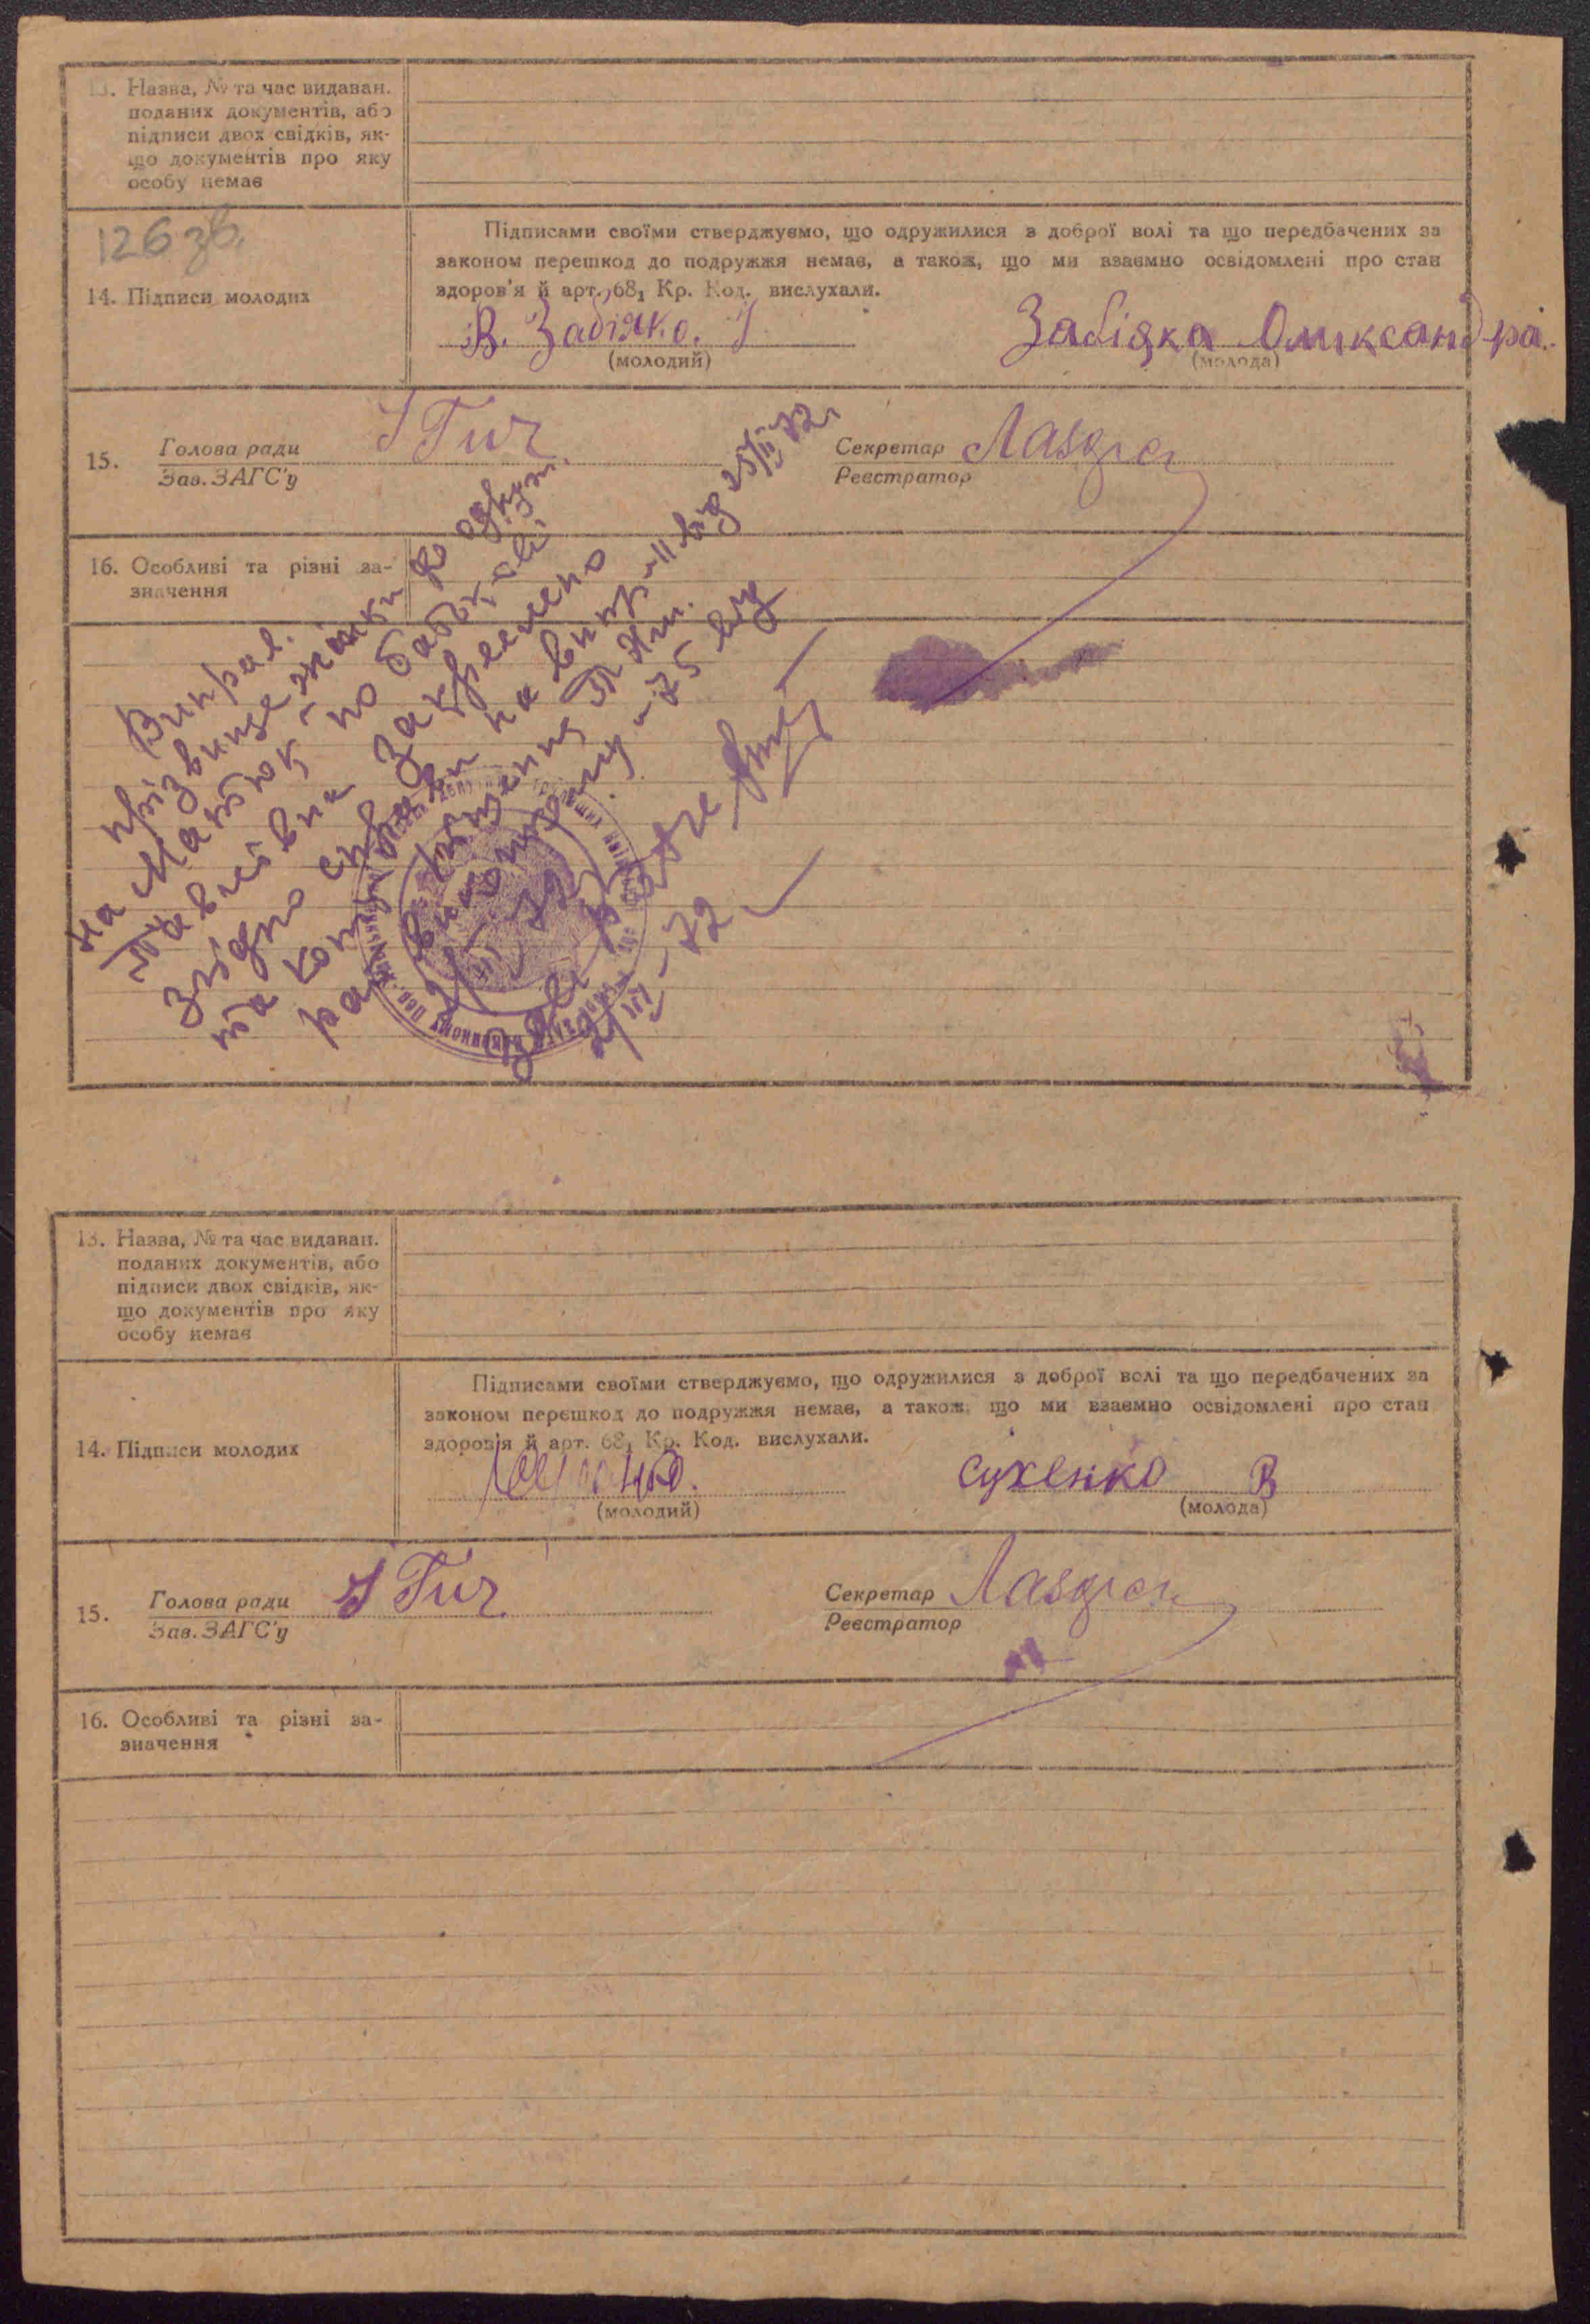 13. Назва, № та час видаван.
поданих документів, або
підписи двох свідків, як-
що документів про яку
особу немає
126 зв.
14. Підписи молодих
Підписами своїми стверджуємо, що одружилися з доброї волі та що передбачених за
законом перешкод до подружжя немає, а також, що ми взаємно освідомлені про стан
здоров'я й арт. 68₁ Кр. Код. вислухали.
В. Забіяко.
(молодий)
Забіяка Оликсандра.
(молода)
15. Голова ради
Зав. ЗАГС'у
Секретар
Реєстратор
16. Особливі та різні за-
значення
Виправ.
прізвище жінки до одруж.
на Матюк по батькові
Павлівна закреслено
згідно справи на випр. 11 від 25/II 72 р
та
рай виконкому 75 від
2/III-72
2/III-72
13. Назва, № та час видаван.
поданих документів, або
підписи двох свідків, як-
що документів про яку
особу немає
14. Підписи молодих
Підписами своїми стверджуємо, що одружилися з доброї волі та що передбачених за
законом перешкод до подружжя немає, а також, що ми взаємно освідомлені про стан
здоров'я й арт. 68₁ Кр. Код. вислухали.
(молодий)
Сухенко В
(молода)
15. Голова ради
Зав. ЗАГС'у
Секретар
Реєстратор
16. Особливі та різні за-
значення